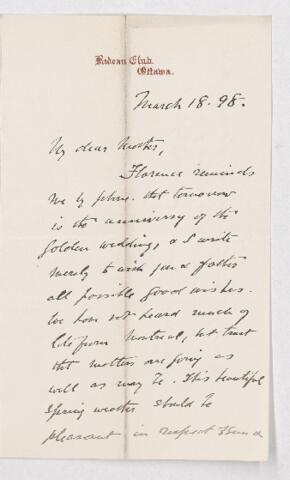 Rideau Club.
Ottawa.
March 18. 98.
My dear Mother,
Florence reminds
me by phone that tomorrow
is the anniversy of the
Golden wedding, & I write
merely to wish you & father
all possible good wishes.
We have not heard much of
late from Montreal, but trust
that matters are going as
well as may be. This beautiful
Spring weather should be
pleasant in respect